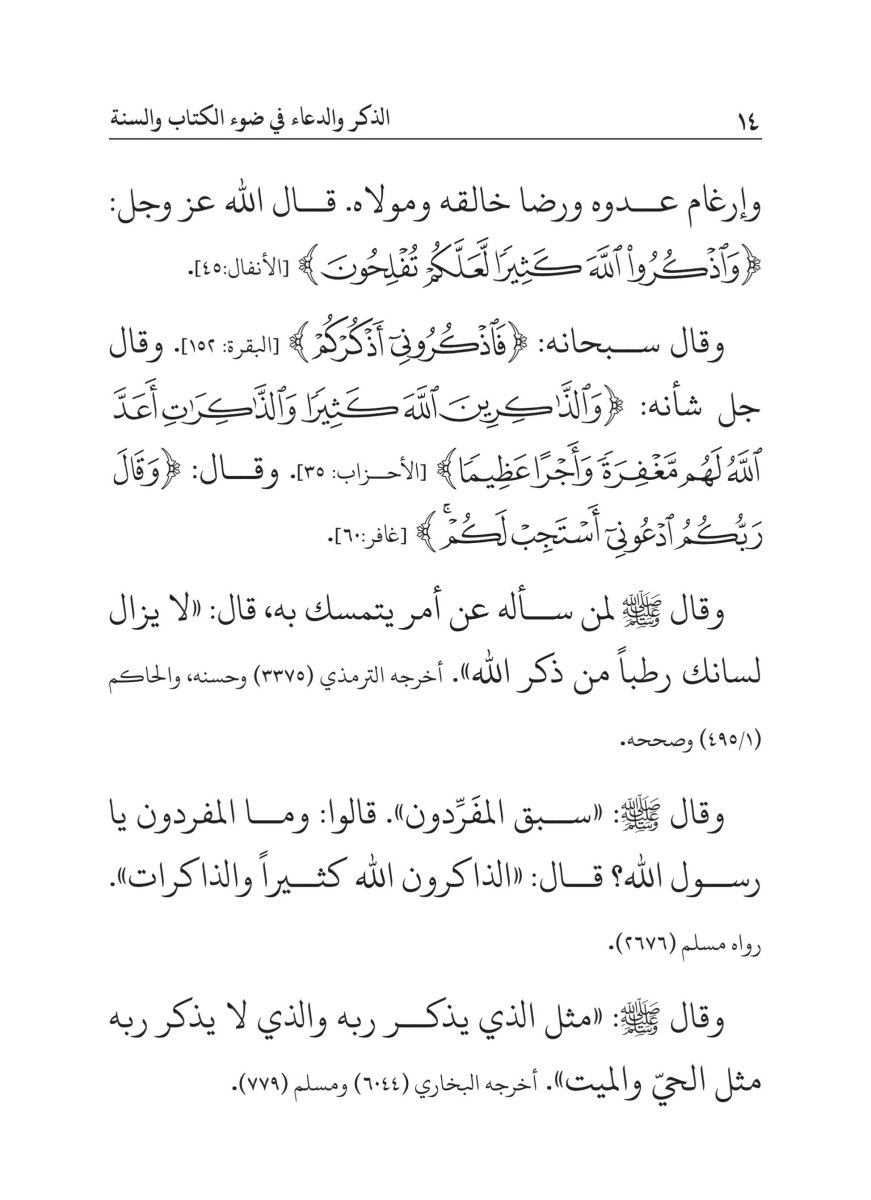 ١٤ الذكر والدعاء في ضوء الكتاب والسنة
وإرغام عدوه ورضا خالقه ومولاه. قال الله عز وجل:
﴿وَٱذۡكُرُواْ ٱللَّهَ كَثِيرٗا لَّعَلَّكُمۡ تُفۡلِحُونَ﴾ [الأنفال:٤٥].
وقال سبحانه: ﴿فَٱذۡكُرُونِيٓ أَذۡكُرۡكُمۡ﴾ [البقرة: ١٥٢]. وقال
جل شأنه: ﴿وَٱلذَّٰكِرِينَ ٱللَّهَ كَثِيرٗا وَٱلذَّٰكِرَٰتِ أَعَدَّ
ٱللَّهُ لَهُم مَّغۡفِرَةٗ وَأَجۡرًا عَظِيمٗا﴾ [الأحزاب: ٣٥]. وقال: ﴿وَقَالَ
رَبُّكُمُ ٱدۡعُونِيٓ أَسۡتَجِبۡ لَكُمۡۚ﴾ [غافر:٦٠].
وقال ﷺ لمن سأله عن أمر يتمسك به، قال: «لا يزال
لسانك رطباً من ذكر الله». أخرجه الترمذي (٣٣٧٥) وحسنه، والحاكم
(٤٩٥/١) وصححه.
وقال ﷺ: «سبق المفَرِّدون». قالوا: وما المفردون يا
رسول الله؟ قال: «الذاكرون الله كثيراً والذاكرات».
رواه مسلم (٢٦٧٦).
وقال ﷺ: «مثل الذي يذكر ربه والذي لا يذكر ربه
مثل الحيّ والميت». أخرجه البخاري (٦٠٤٤) ومسلم (٧٧٩).